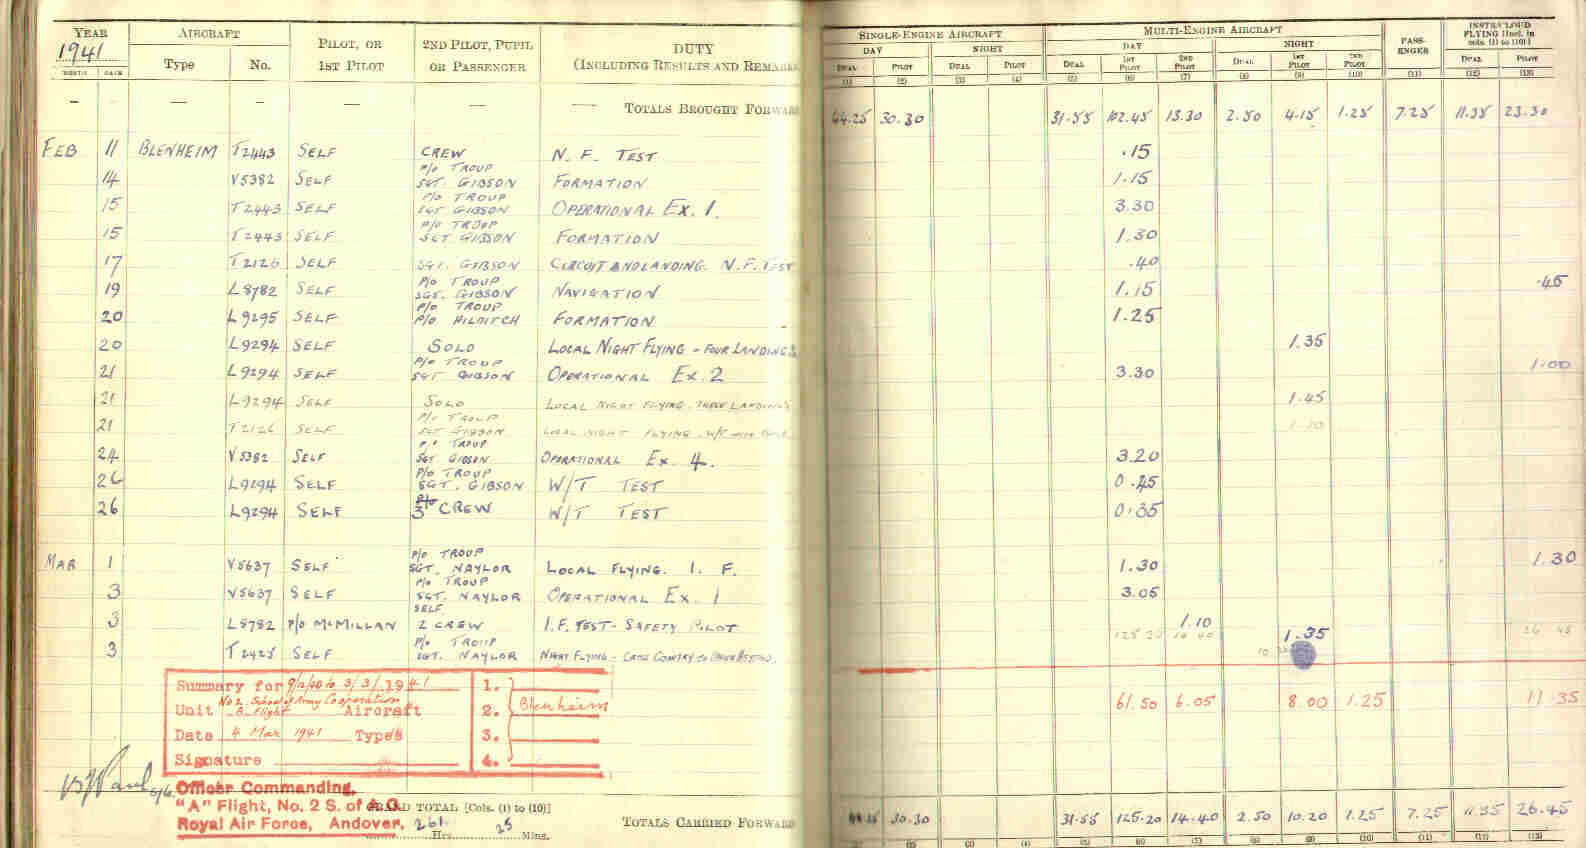 YEAR AIRCRAFT PILOT, OR 1ST PILOT 2ND PILOT, PUPIL OR PASSENGER DUTY (INCLUDING RESULTS AND REMARKS SINGLE-ENGINE AIRCRAFT MULTI-ENGINE AIRCRAFT PASS-ENGER INSTR/CLOUD FLYING [Incl. in cols. (1) to (10)]
1941 Type No. DAY NIGHT DAY NIGHT
MONTH DATE DUAL PILOT DUAL PILOT DUAL 1ST PILOT 2ND PILOT DUAL 1ST PILOT 2ND PILOT DUAL PILOT
(1) (2) (3) (4) (5) (6) (7) (8) (9) (10) (11) (12) (13)
— — — — — — — TOTALS BROUGHT FORWARD 44.25 30.30 31.55 102.45 13.30 2.50 4.15 1.25 7.25 11.35 23.30
FEB 11 BLENHEIM T2443 SELF CREW N. F. TEST .15
14 V5382 SELF P/O TROUP SGT. GIBSON FORMATION 1.15
15 T2443 SELF P/O TROUP SGT GIBSON OPERATIONAL EX. 1. 3.30
15 T2443 SELF P/O TROUP SGT. GIBSON FORMATION 1.30
17 T2126 SELF SGT. GIBSON CIRCUIT AND LANDING. N.F. TEST .40
19 L8782 SELF P/O TROUP SGT. GIBSON NAVIGATION 1.15 .45
20 L9295 SELF P/O TROUP P/O HILDITCH FORMATION 1.25
20 L9294 SELF SOLO LOCAL NIGHT FLYING - FOUR LANDINGS 1.35
21 L9294 SELF P/O TROUP SGT GIBSON OPERATIONAL EX. 2 3.30 1.00
21 L9294 SELF SOLO LOCAL NIGHT FLYING. THREE LANDINGS 1.45
21 T2126 SELF P/O TROUP SGT GIBSON LOCAL NIGHT FLYING. W/T 1.10
24 V5382 SELF P/O TROUP SGT GIBSON OPERATIONAL EX. 4. 3.20
26 L9294 SELF P/O TROUP SGT. GIBSON W/T TEST 0.45
26 L9294 SELF 3 CREW W/T TEST 0.35
MAR 1 V5637 SELF P/O TROUP SGT. NAYLOR LOCAL FLYING. I. F. 1.30 1.30
3 V5637 SELF P/O TROUP SGT. NAYLOR OPERATIONAL EX. 1 3.05
3 L8782 P/O McMILLAN SELF 2 CREW I.F. TEST - SAFETY PILOT 1.10
3 T2425 SELF P/O TROUP SGT. NAYLOR NIGHT FLYING - CROSS COUNTRY 1.35
Summary for 9/12/40 to 3/3/1941 1.
Unit No 2 School of Army Cooperation B. Flight Aircraft 2. Blenheim 61.50 6.05 8.00 1.25 11.35
Date 4 Mar 1941 Types 3.
Signature 4.
Officer Commanding,
"A" Flight, No. 2 S. of A.C. GRAND TOTAL [Cols. (1) to (10)]
Royal Air Force, Andover. 261 Hrs. 25 Mins. TOTALS CARRIED FORWARD 44.25 30.30 31.55 125.20 14.40 2.50 10.20 1.25 7.25 11.35 26.45
(2) (3) (4) (5) (6) (7) (8) (9) (10) (11) (12) (13)